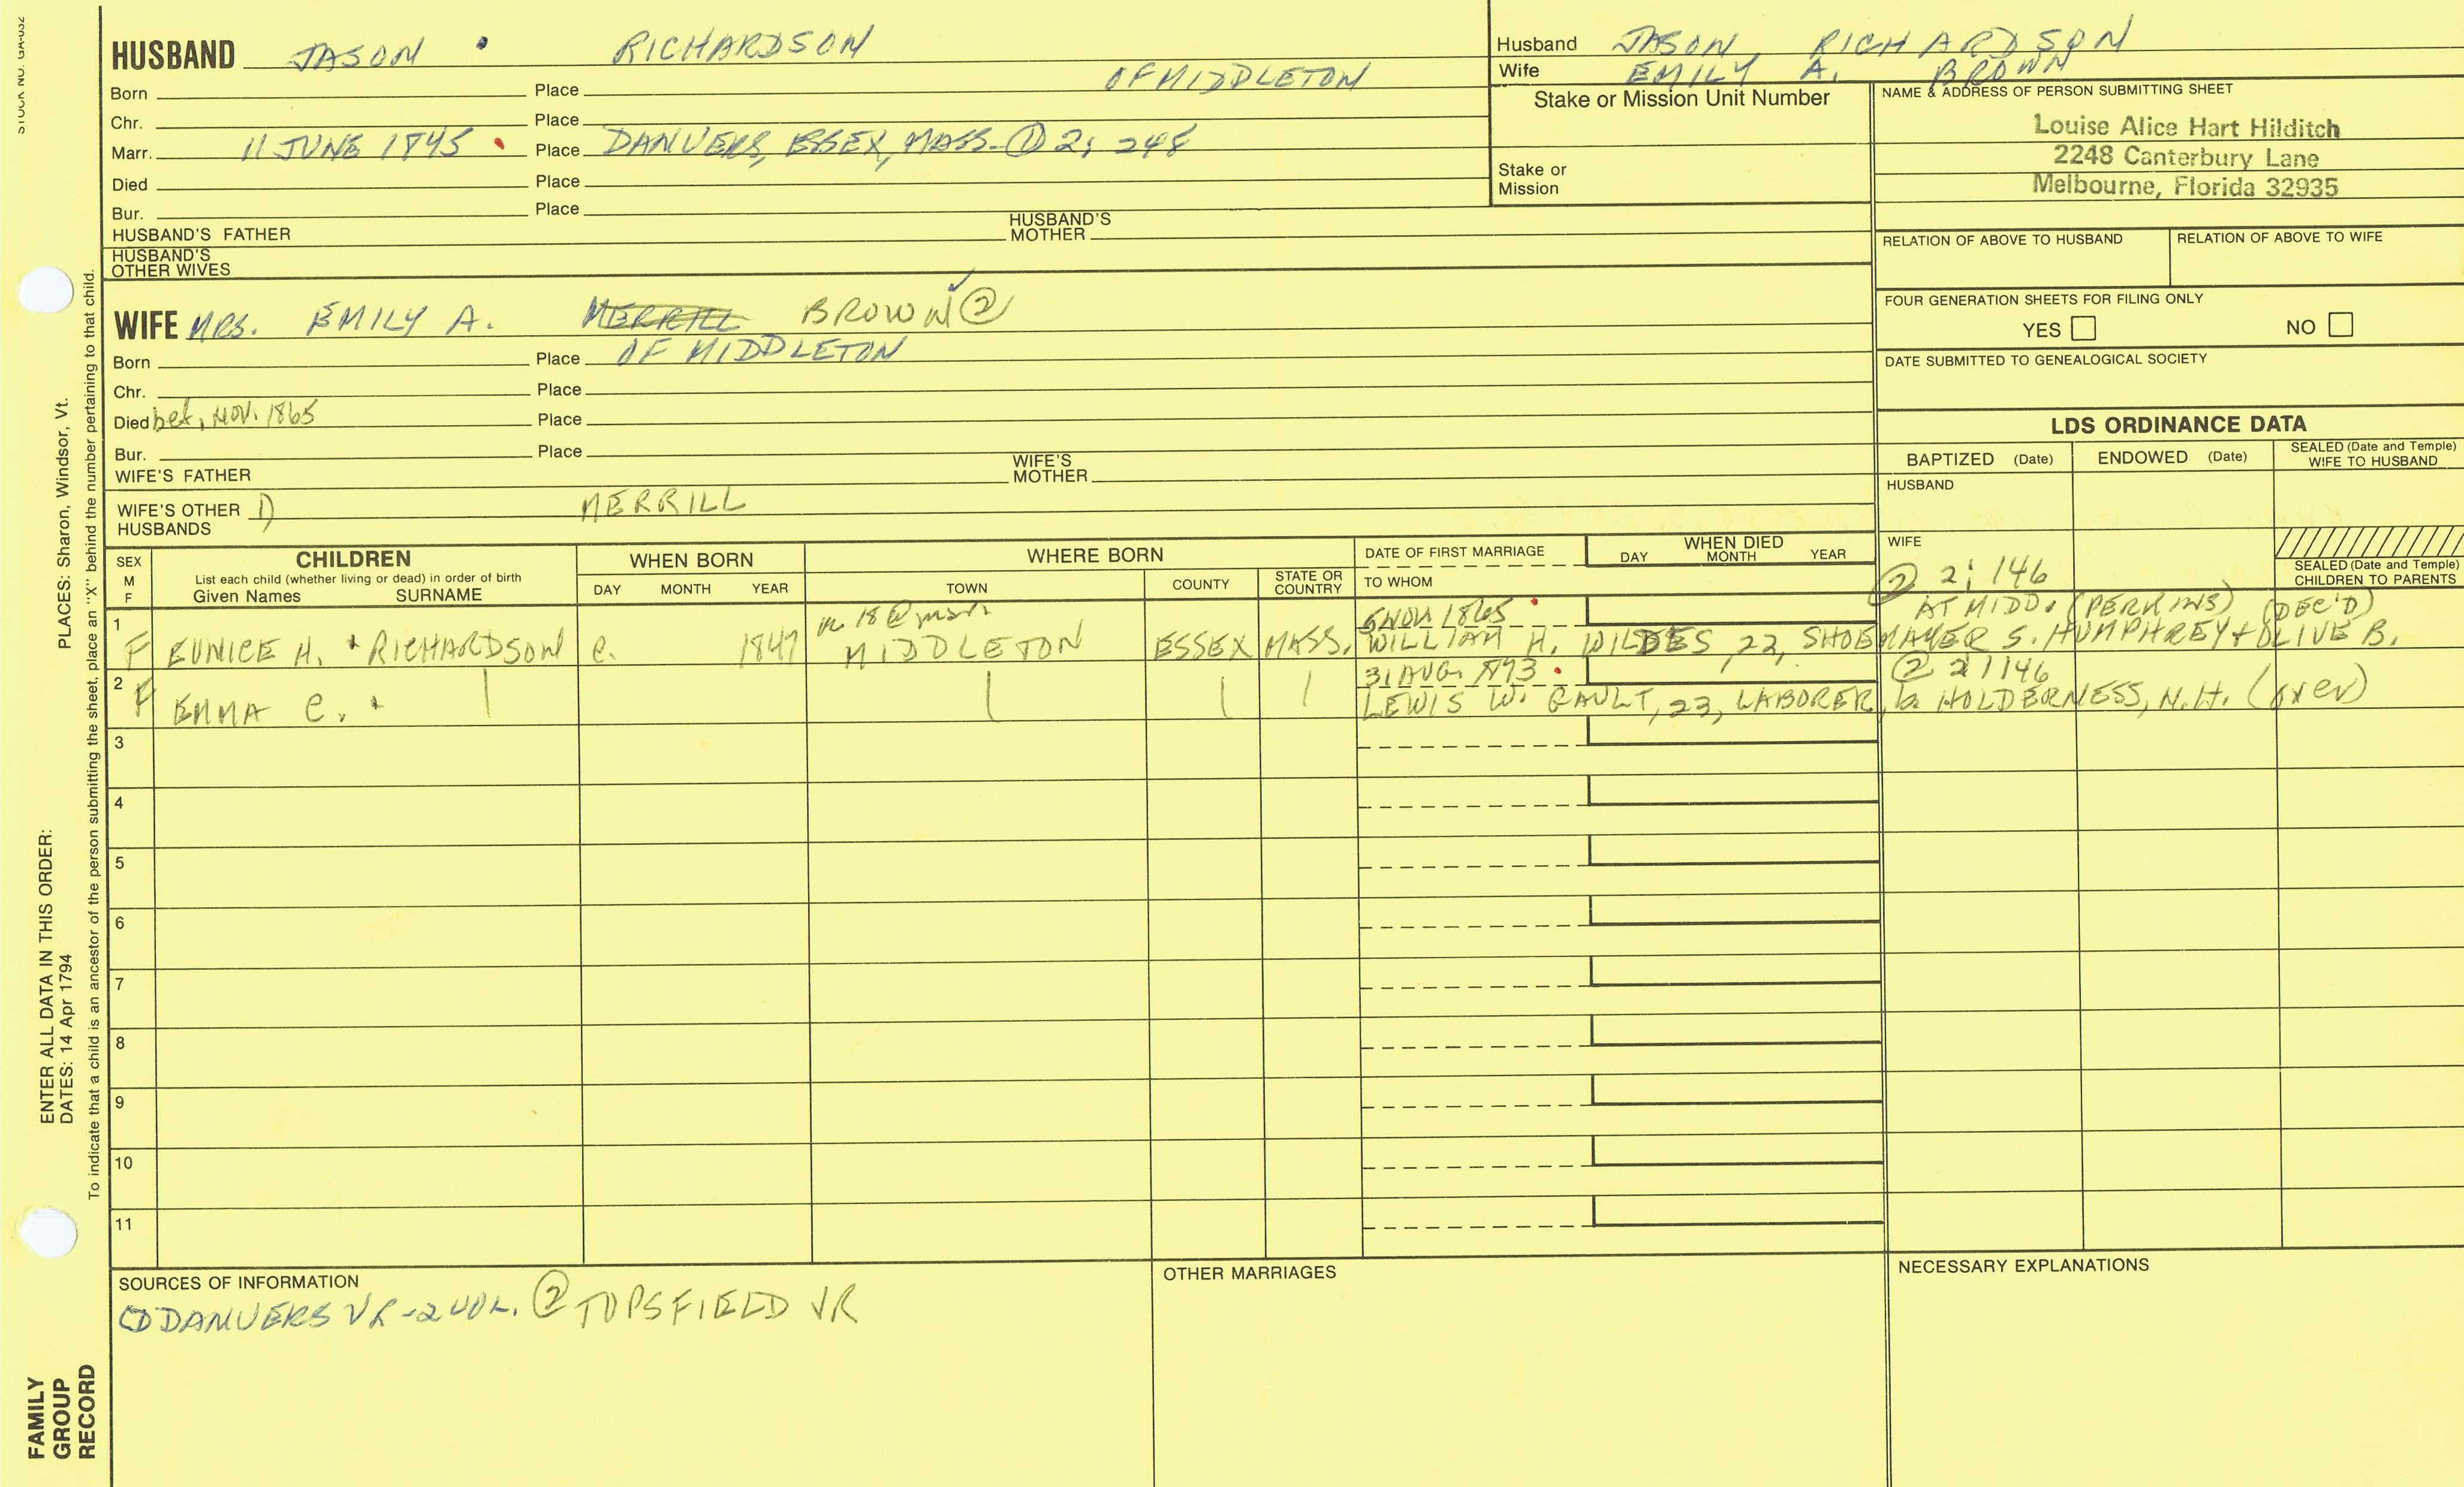 STOCK NO. GA-032
HUSBAND JASON RICHARDSON
Born Place OF MIDDLETON
Chr. Place
Marr. 11 JUNE 1845 Place DANVERS, ESSEX, MASS. ① 2; 248
Died Place
Bur. Place
HUSBAND'S FATHER HUSBAND'S MOTHER
HUSBAND'S OTHER WIVES
Husband JASON RICHARDSON
Wife EMILY A. BROWN
Stake or Mission Unit Number
Stake or Mission
NAME & ADDRESS OF PERSON SUBMITTING SHEET
Louise Alice Hart Hilditch
2248 Canterbury Lane
Melbourne, Florida 32935
RELATION OF ABOVE TO HUSBAND RELATION OF ABOVE TO WIFE
FOUR GENERATION SHEETS FOR FILING ONLY
YES NO
DATE SUBMITTED TO GENEALOGICAL SOCIETY
WIFE MRS. EMILY A. MERRILL BROWN ②
Born Place OF MIDDLETON
Chr. Place
Died bef. NOV. 1865 Place
Bur. Place
WIFE'S FATHER WIFE'S MOTHER
WIFE'S OTHER HUSBANDS 1) MERRILL
LDS ORDINANCE DATA
BAPTIZED (Date) ENDOWED (Date) SEALED (Date and Temple) WIFE TO HUSBAND
HUSBAND
WIFE
SEALED (Date and Temple) CHILDREN TO PARENTS
SEX M F
CHILDREN
List each child (whether living or dead) in order of birth
Given Names SURNAME
WHEN BORN
DAY MONTH YEAR
WHERE BORN
TOWN COUNTY STATE OR COUNTRY
DATE OF FIRST MARRIAGE
TO WHOM
WHEN DIED
DAY MONTH YEAR
② 2; 146
1 18 @ marr 6 NOV 1865 AT MIDD. (PERKINS) (DEC'D)
F EUNICE H. RICHARDSON c. 1847 MIDDLETON ESSEX MASS. WILLIAM H. WILDES, 22, SHOEMAKER S. HUMPHREY + OLIVE B.
2 31 AUG. 1873 ② 2; 146
F EMMA C. LEWIS W. GAULT, 23, LABORER, b. HOLDERNESS, N.H. (over)
3
4
5
6
7
8
9
10
11
SOURCES OF INFORMATION
① DANVERS VR - 2 VOL. ② TOPSFIELD VR
OTHER MARRIAGES
NECESSARY EXPLANATIONS
ENTER ALL DATA IN THIS ORDER:
DATES: 14 Apr 1794 PLACES: Sharon, Windsor, Vt.
To indicate that a child is an ancestor of the person submitting the sheet, place an "X" behind the number pertaining to that child.
FAMILY
GROUP
RECORD